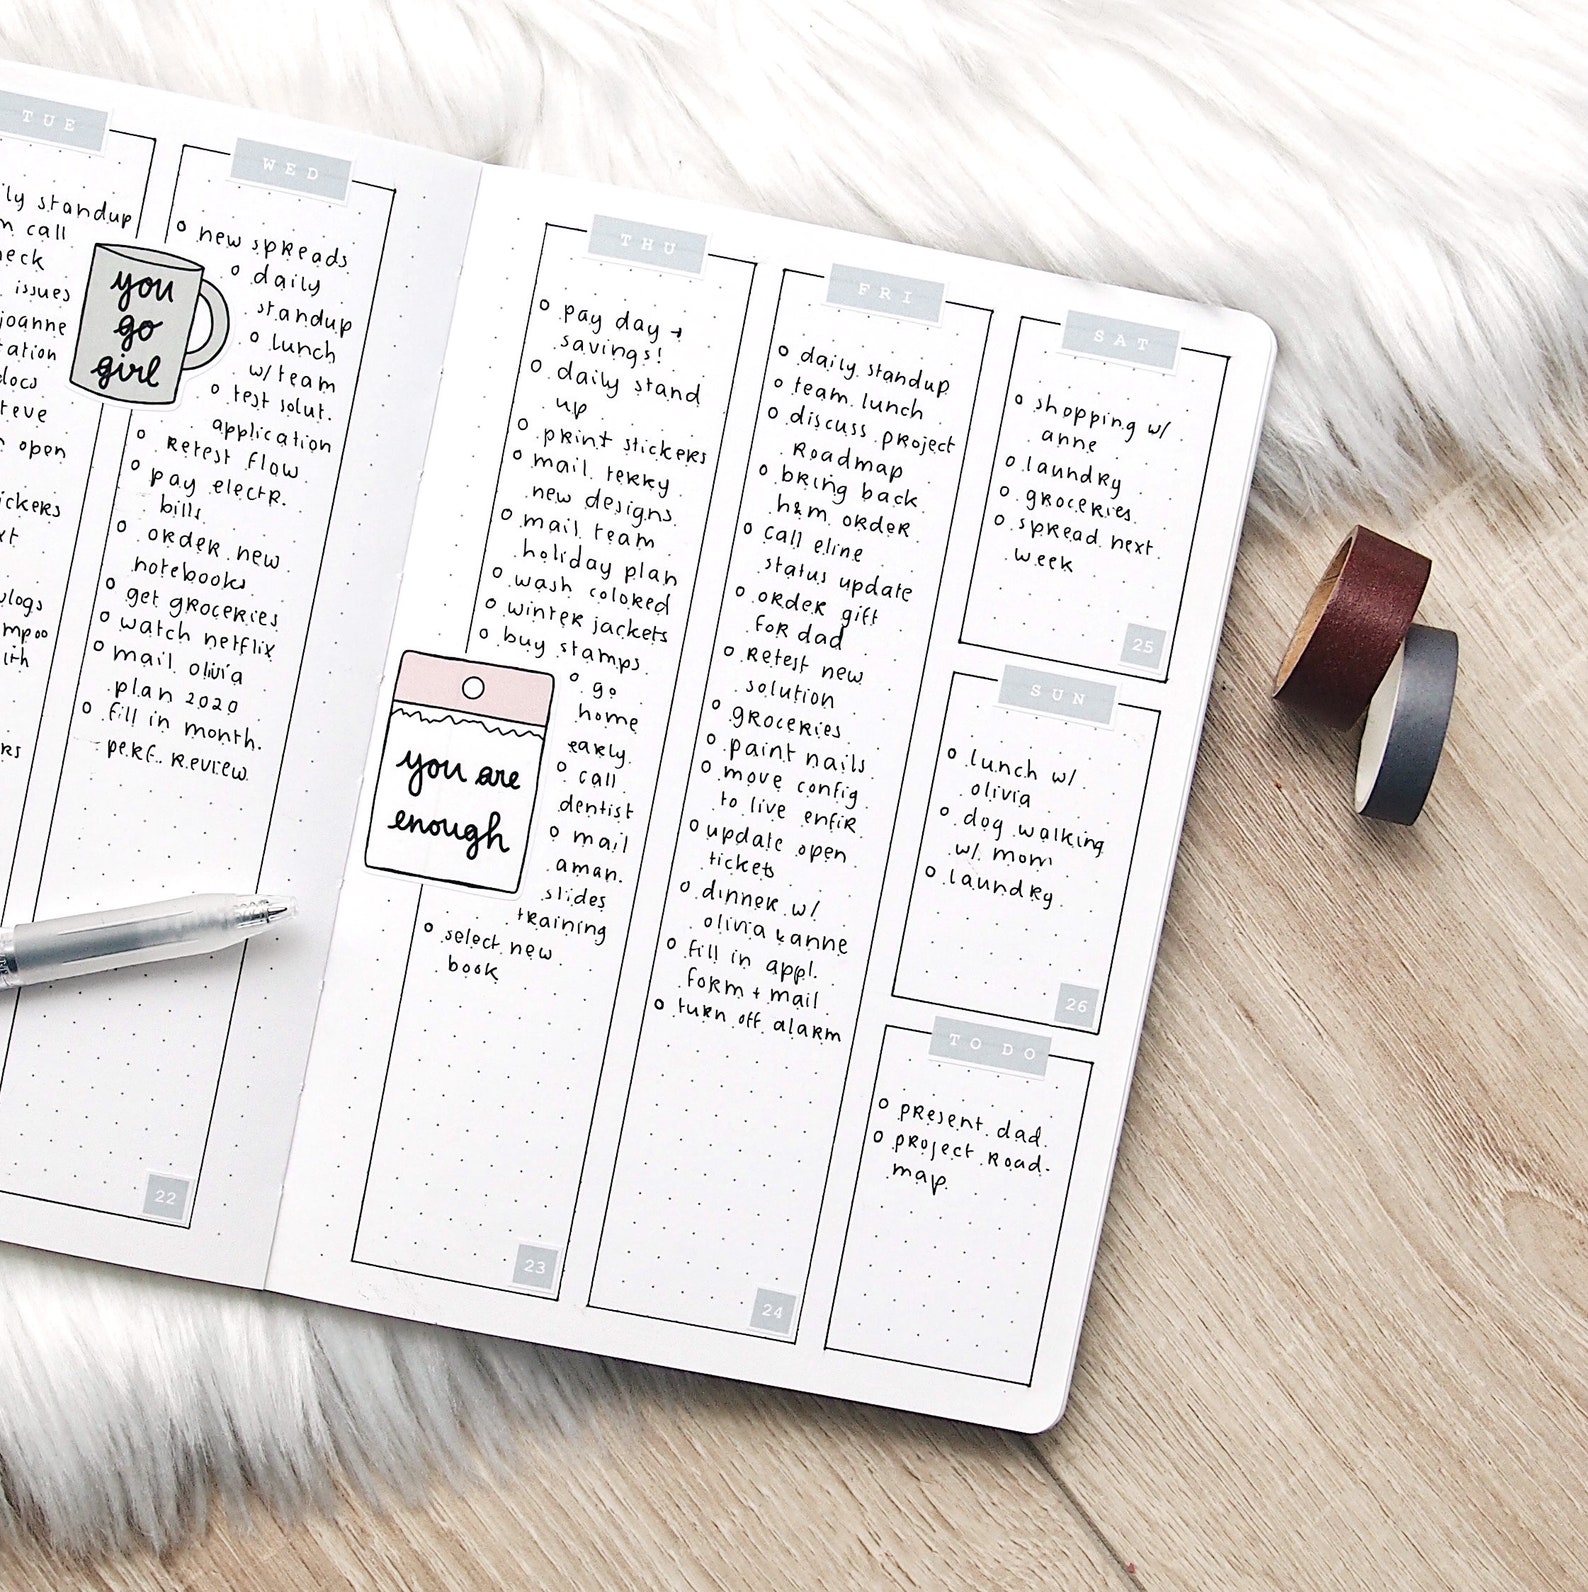 TUE
ly standup
call
issues
joanne
docs
open
you
go
girl
WED
new spreads
daily
standup
lunch
w/ team
test solut.
application
retest flow
pay electr.
bills
order new
notebooks
get groceries
watch netflix
mail olivia
plan 2020
fill in month.
perf. review
22
THU
pay day →
savings!
daily stand
up
print stickers
mail terry
new designs
mail team
holiday plan
wash colored
winter jackets
buy stamps
go
home
early
call
dentist
mail
aman.
slides
training
select new
book
you are
enough
23
FRI
daily standup
team lunch
discuss project
roadmap
bring back
h&m order
call eline
status update
order gift
for dad
retest new
solution
groceries
paint nails
move config
to live enfir
update open
tickets
dinner w/
olivia & anne
fill in appl.
form + mail
turn off alarm
24
SAT
shopping w/
anne
laundry
groceries
spread next
week
25
SUN
lunch w/
olivia
dog walking
w/ mom
laundry
26
TO DO
present dad
project road-
map